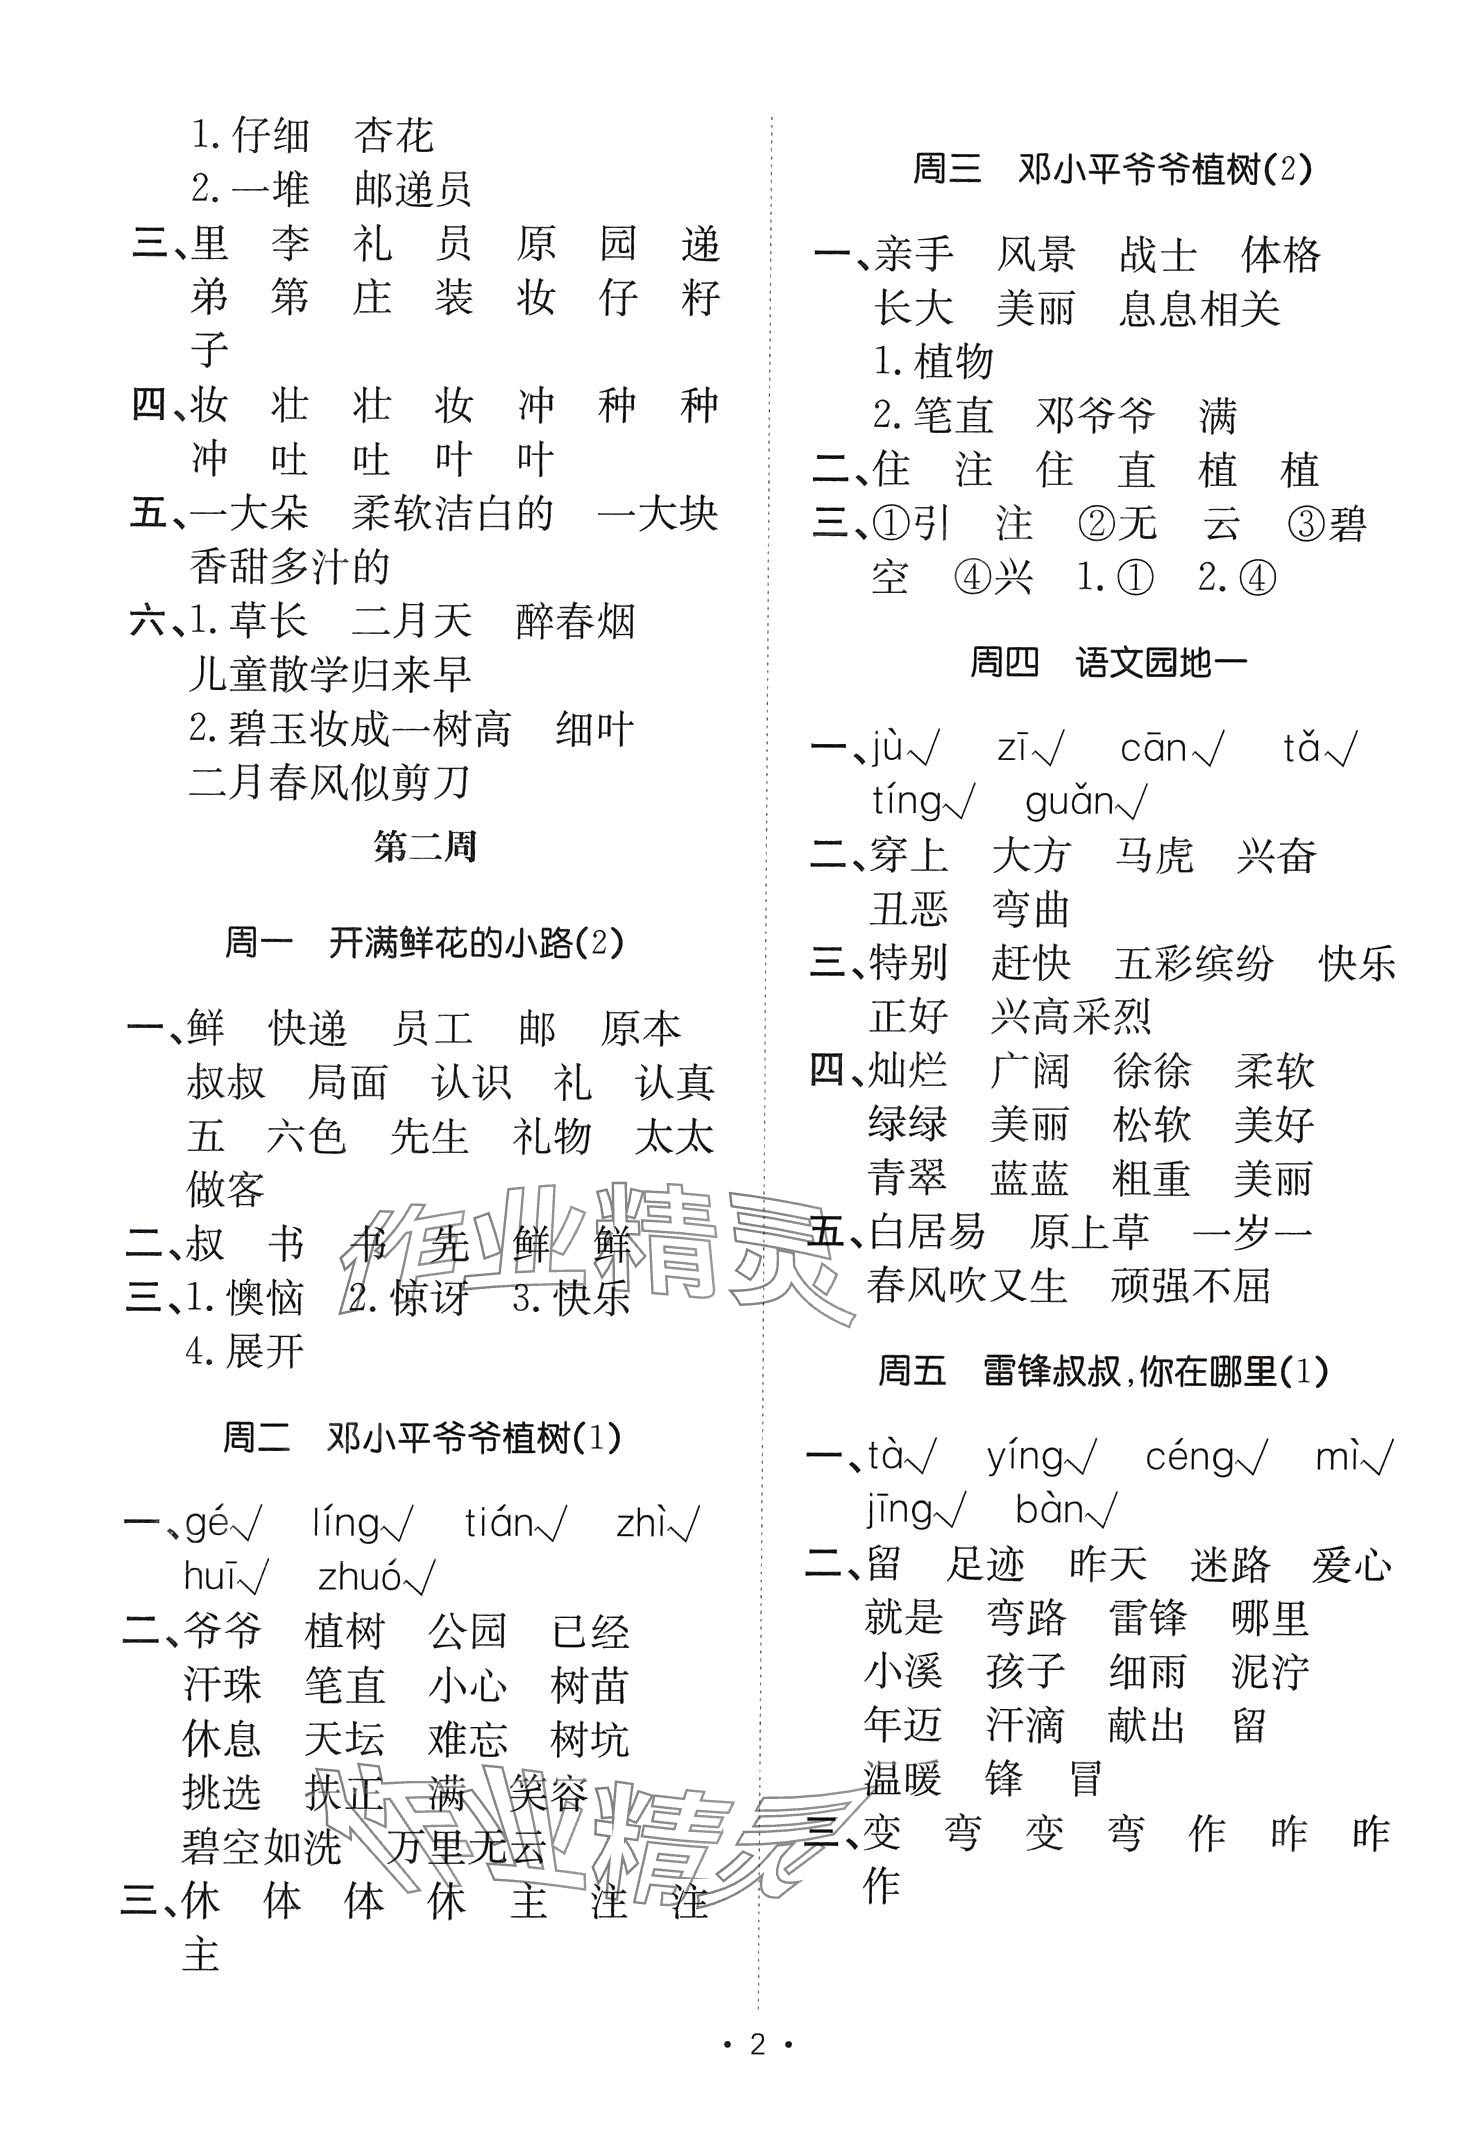 1. 仔细　杏花
2. 一堆　邮递员
三、里　李　礼　员　原　园　递
弟　第　庄　装　妆　仔　籽
子
四、妆　壮　壮　妆　冲　种　种
冲　吐　吐　叶　叶
五、一大朵　柔软洁白的　一大块
香甜多汁的
六、1. 草长　二月天　醉春烟
儿童散学归来早
2. 碧玉妆成一树高　细叶
二月春风似剪刀
第二周
周一　开满鲜花的小路(2)
一、鲜　快递　员工　邮　原本
叔叔　局面　认识　礼　认真
五　六色　先生　礼物　太太
做客
二、叔　书　书　先　鲜　鲜
三、1. 懊恼　2. 惊讶　3. 快乐
4. 展开
周二　邓小平爷爷植树(1)
一、gé√　líng√　tián√　zhì√
huī√　zhuó√
二、爷爷　植树　公园　已经
汗珠　笔直　小心　树苗
休息　天坛　难忘　树坑
挑选　扶正　满　笑容
碧空如洗　万里无云
三、休　体　体　休　主　注　注
主
周三　邓小平爷爷植树(2)
一、亲手　风景　战士　体格
长大　美丽　息息相关
1. 植物
2. 笔直　邓爷爷　满
二、住　注　住　直　植　植
三、①引　注　②无　云　③碧
空　④兴　1. ①　2. ④
周四　语文园地一
一、jù√　zī√　cān√　tǎ√
tíng√　guǎn√
二、穿上　大方　马虎　兴奋
丑恶　弯曲
三、特别　赶快　五彩缤纷　快乐
正好　兴高采烈
四、灿烂　广阔　徐徐　柔软
绿绿　美丽　松软　美好
青翠　蓝蓝　粗重　美丽
五、白居易　原上草　一岁一
春风吹又生　顽强不屈
周五　雷锋叔叔,你在哪里(1)
一、tà√　yíng√　céng√　mì√
jīng√　bàn√
二、留　足迹　昨天　迷路　爱心
就是　弯路　雷锋　哪里
小溪　孩子　细雨　泥泞
年迈　汗滴　献出　留
温暖　锋　冒
三、变　弯　变　弯　作　昨　昨
作
作业精灵
作业精灵
· 2 ·